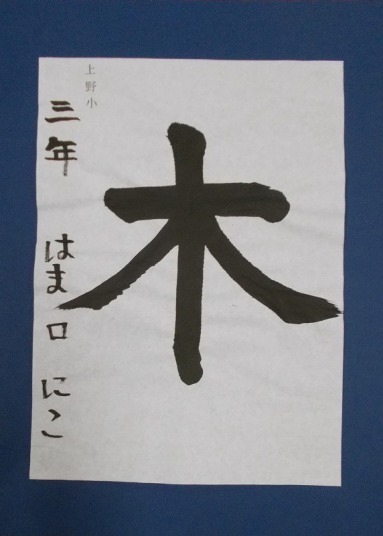 木
上野小
三年 はま口 にこ